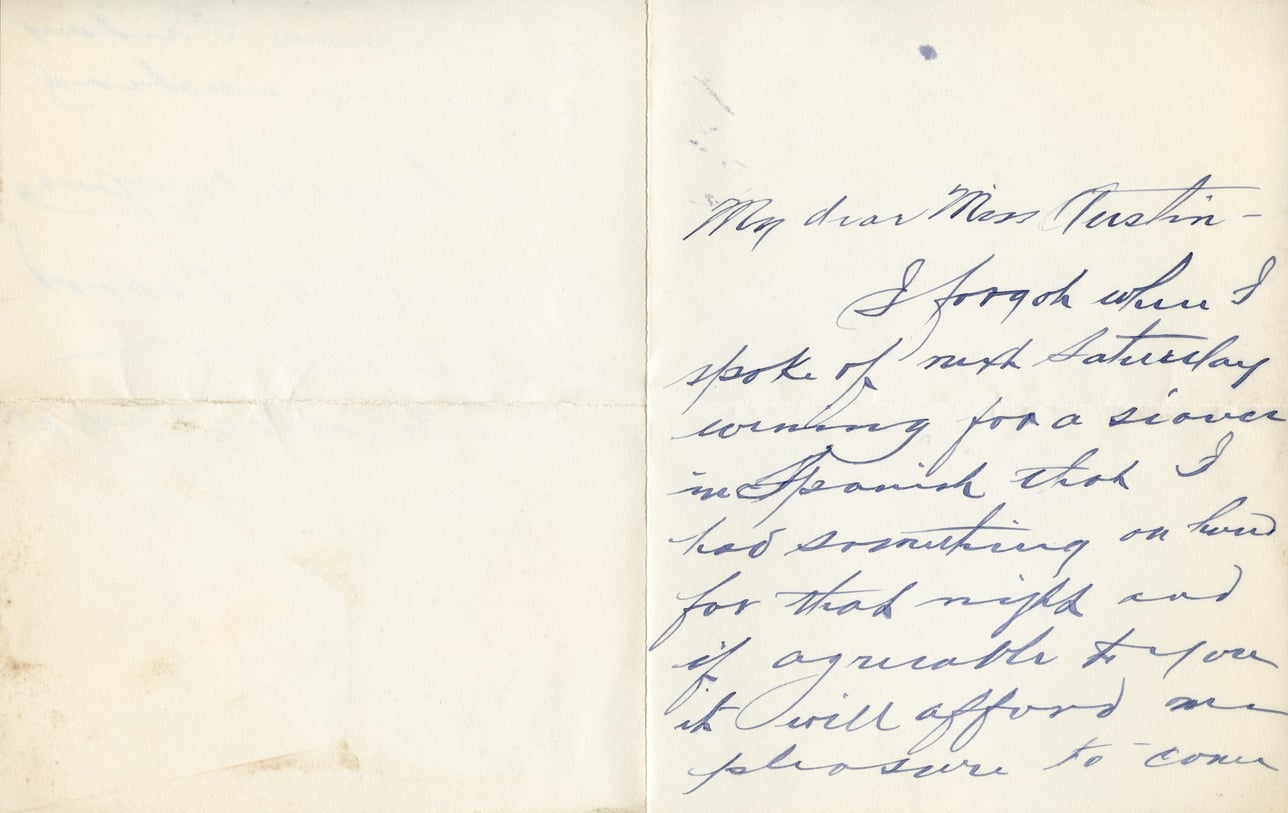 My dear Miss Austin -
I forgot when I
spoke of next Saturday
evening for a siance
in Spanish that I
had something on hand
for that night and
if agreeable to you
it will afford me
pleasure to come